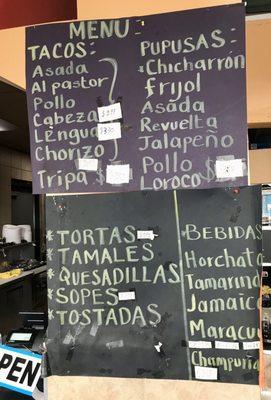 MENU
TACOS:
Asada
Al pastor
Pollo
Cabeza
LENGUA
Chorizo
Tripa $
PUPUSAS:
*Chicharrón
frijol
Asada
Revuelta
Jalapeño
Pollo
Loroco
*TORTAS
*TAMALES
*QUESADILLAS
*SOPES
*TOSTADAS
*BEBIDAS
Horchata
Tamarind
Jamaica
Maracu
Champurra
OPEN